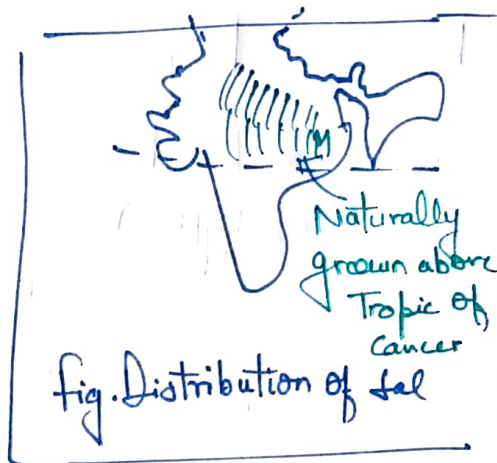 M
Naturally
grown above
Tropic of
Cancer
fig. Distribution of Sal